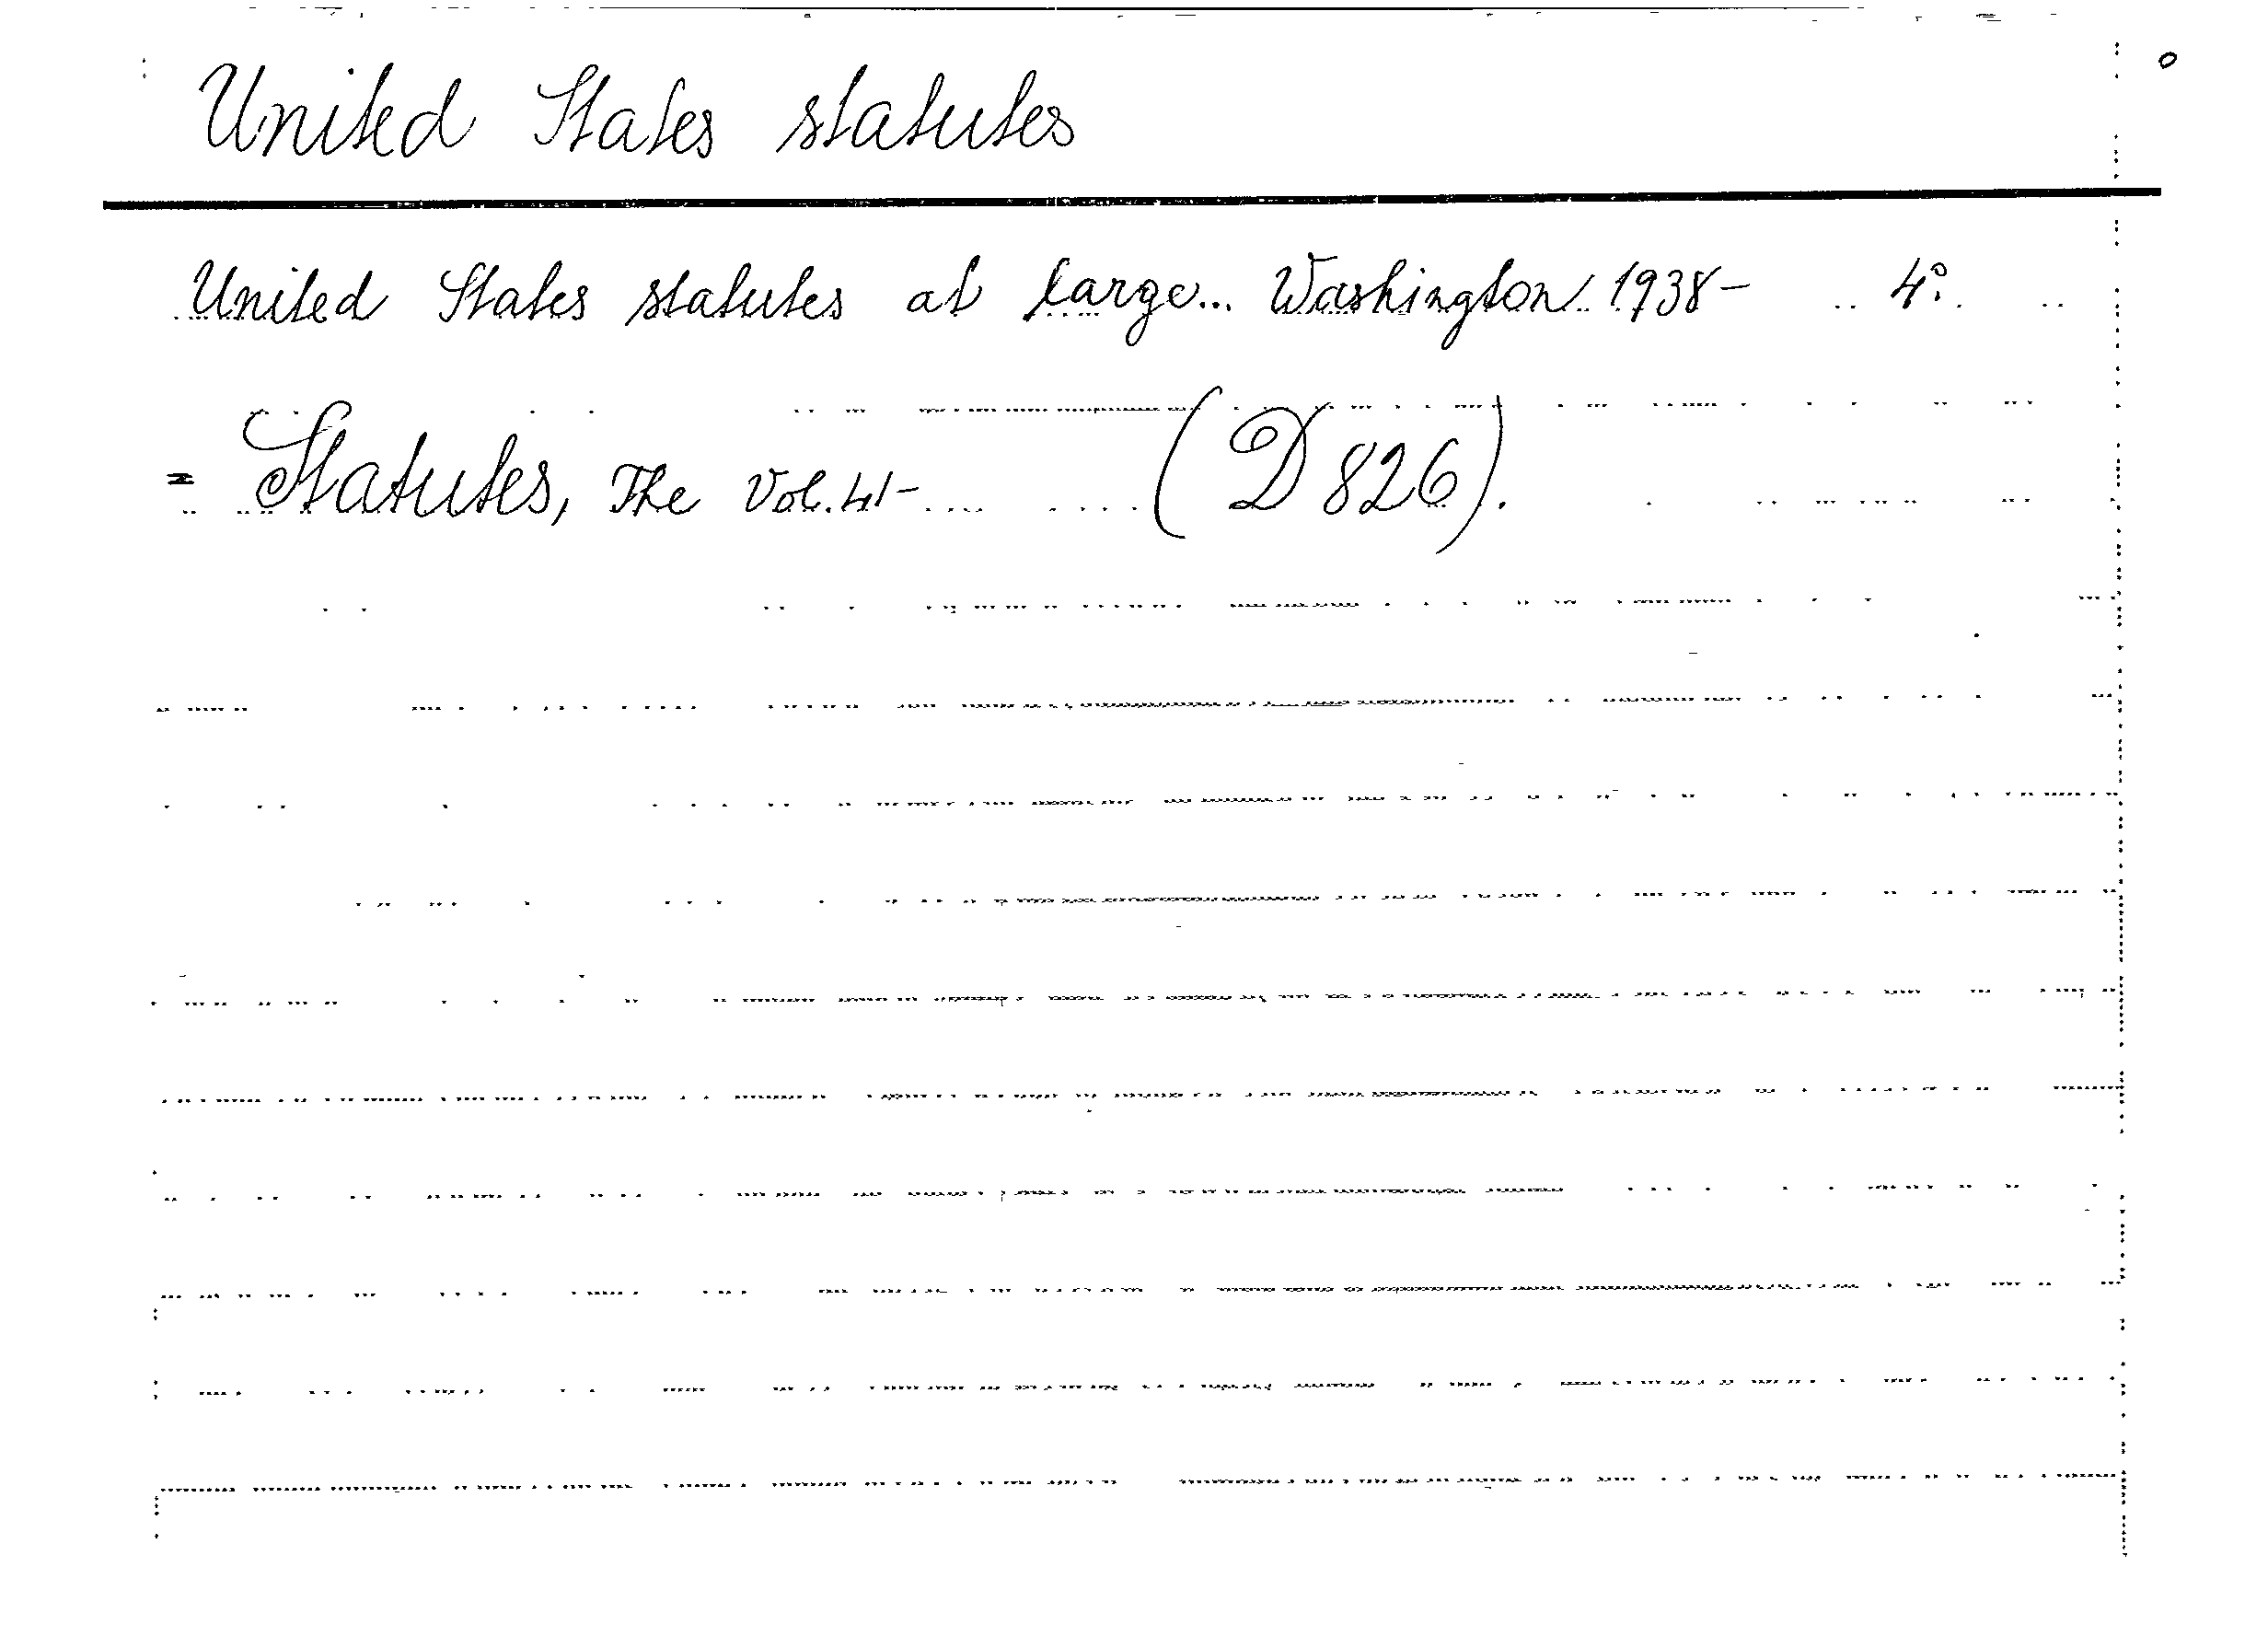 United States statutes
United States statutes at large... Washington 1938- 4°.
= Statutes, The Vol. 41- (D 826).